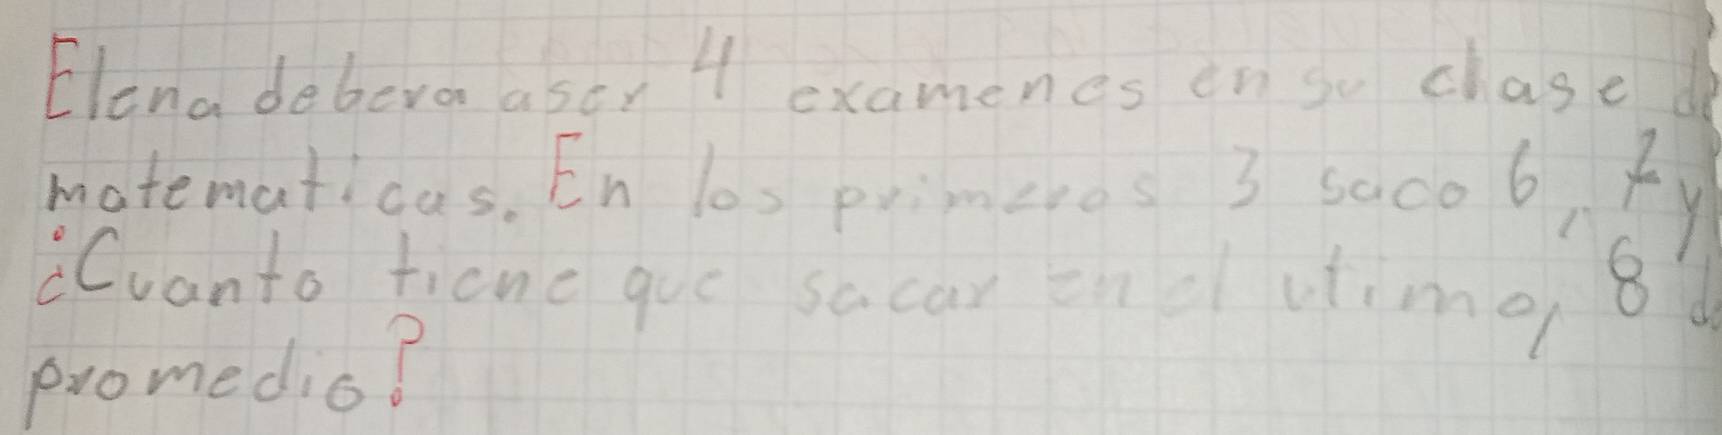 Elena debera aser 4 examenes en su clase de
matematicas. En los primeros 3 saco 6, 7 y
¿Cuanto tiene que sacar en el utimo, 8 de
promedio?